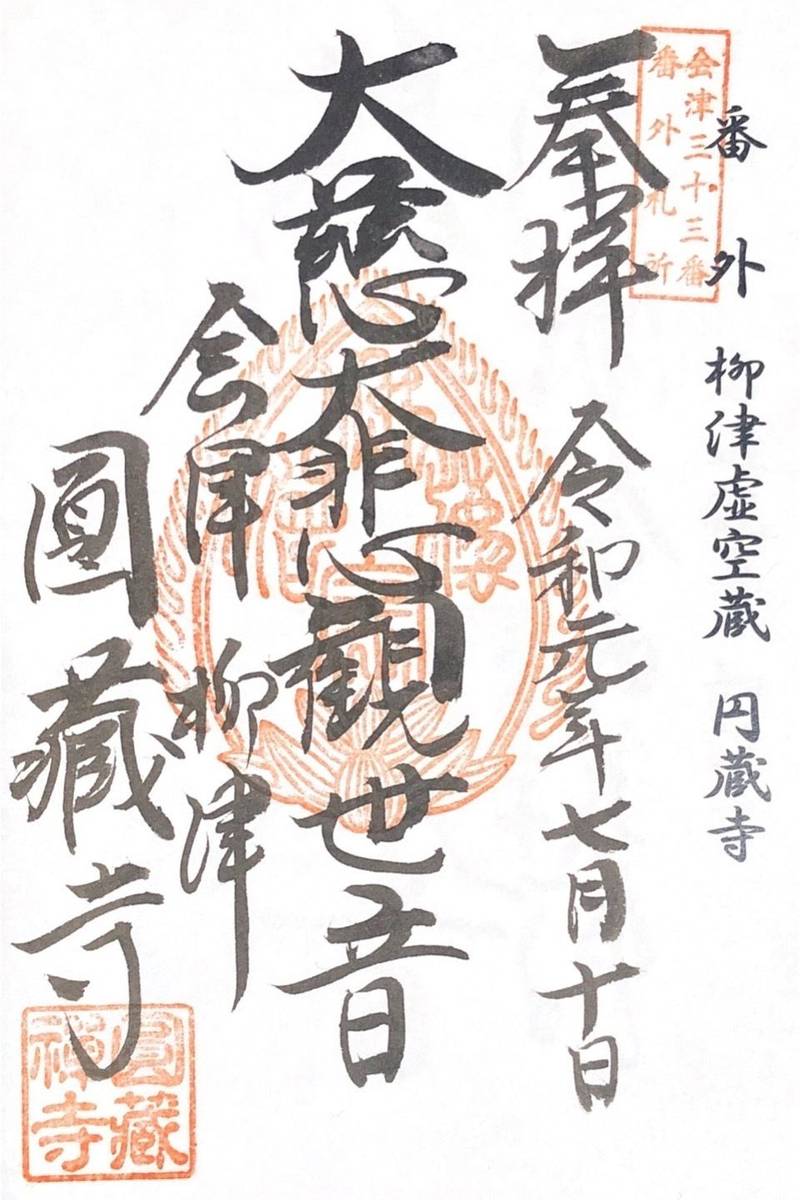 番外 柳津虚空蔵 円蔵寺
会津三十三番
番外札所
奉拝
令和元年七月十日
大慈大悲観世音
会津 柳津
圓藏寺
圓藏
禅寺